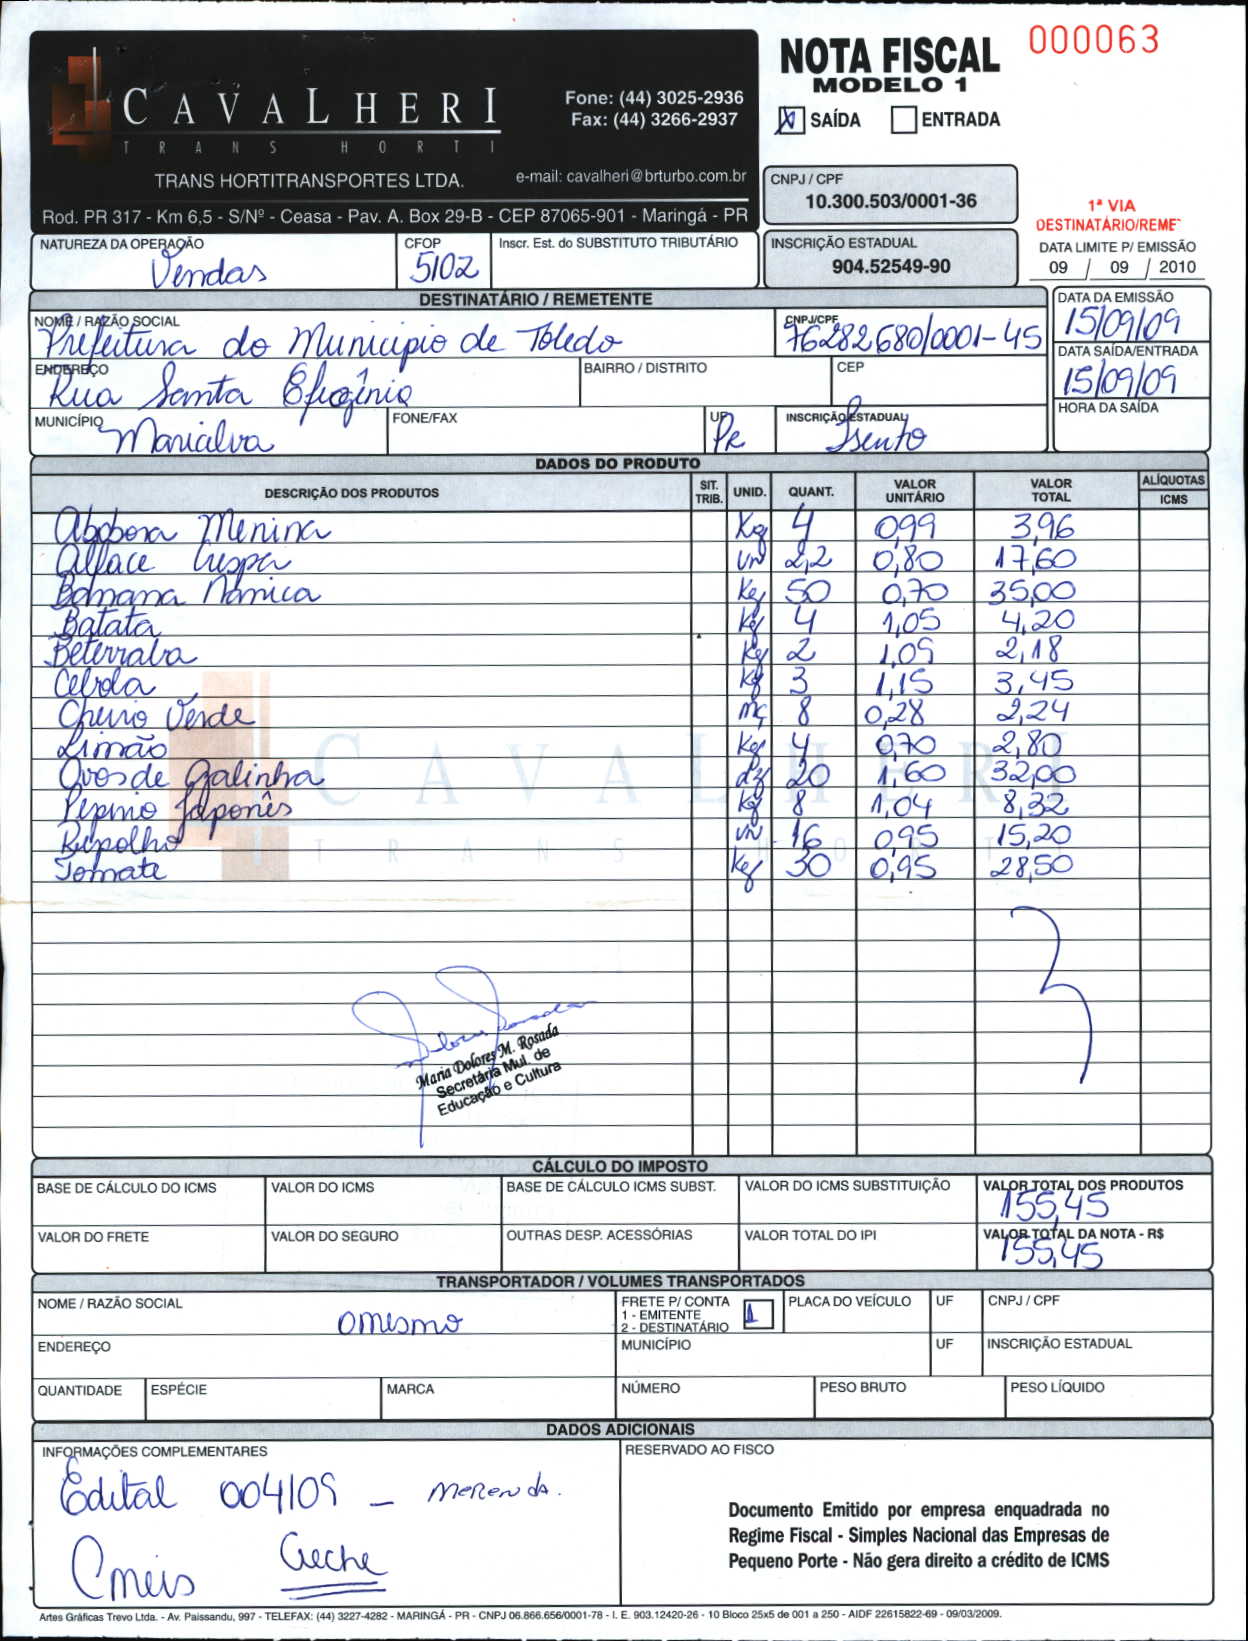 000063
NOTA FISCAL
MODELO 1
CAVALHERI
TRANS HORTI
Fone: (44) 3025-2936
Fax: (44) 3266-2937
X SAÍDA ENTRADA
TRANS HORTITRANSPORTES LTDA.
e-mail: cavalheri@brturbo.com.br
Rod. PR 317 - Km 6,5 - S/Nº - Ceasa - Pav. A. Box 29-B - CEP 87065-901 - Maringá - PR
CNPJ / CPF
10.300.503/0001-36
1ª VIA
DESTINATÁRIO/REME
NATUREZA DA OPERAÇÃO
Vendas
CFOP
5102
Inscr. Est. do SUBSTITUTO TRIBUTÁRIO
INSCRIÇÃO ESTADUAL
904.52549-90
DATA LIMITE P/ EMISSÃO
09 / 09 / 2010
DESTINATÁRIO / REMETENTE
NOME / RAZÃO SOCIAL
Prefeitura do Municipio de Toledo
CNPJ/CPF
76282680/0001-45
DATA DA EMISSÃO
15/09/09
ENDEREÇO
Rua Santa Efigênia
BAIRRO / DISTRITO
CEP
DATA SAÍDA/ENTRADA
15/09/09
MUNICÍPIO
Marialva
FONE/FAX
UF
PR
INSCRIÇÃO ESTADUAL
Isento
HORA DA SAÍDA
DADOS DO PRODUTO
DESCRIÇÃO DOS PRODUTOS SIT. TRIB. UNID. QUANT. VALOR UNITÁRIO VALOR TOTAL ALÍQUOTAS ICMS
Abobora Menina Kg 4 0,99 3,96
Alface Crespa un 22 0,80 17,60
Banana Nanica Kg 50 0,70 35,00
Batata Kg 4 1,05 4,20
Beterraba Kg 2 1,09 2,18
Cebola Kg 3 1,15 3,45
Cheiro Verde mç 8 0,28 2,24
Limão Kg 4 0,70 2,80
Ovos de Galinha dz 20 1,60 32,00
Pepino Japonês Kg 8 1,04 8,32
Repolho un 16 0,95 15,20
Tomate Kg 30 0,95 28,50
CAVALHERI
TRANS HORTI
Maria Dolores M. Rosada
Secretária Mul. de
Educação e Cultura
CÁLCULO DO IMPOSTO
BASE DE CÁLCULO DO ICMS
VALOR DO ICMS
BASE DE CÁLCULO ICMS SUBST.
VALOR DO ICMS SUBSTITUIÇÃO
VALOR TOTAL DOS PRODUTOS
155,45
VALOR DO FRETE
VALOR DO SEGURO
OUTRAS DESP. ACESSÓRIAS
VALOR TOTAL DO IPI
VALOR TOTAL DA NOTA - R$
155,45
TRANSPORTADOR / VOLUMES TRANSPORTADOS
NOME / RAZÃO SOCIAL
O mesmo
FRETE P/ CONTA
1 - EMITENTE
2 - DESTINATÁRIO
1
PLACA DO VEÍCULO
UF
CNPJ / CPF
ENDEREÇO
MUNICÍPIO
UF
INSCRIÇÃO ESTADUAL
QUANTIDADE
ESPÉCIE
MARCA
NÚMERO
PESO BRUTO
PESO LÍQUIDO
DADOS ADICIONAIS
INFORMAÇÕES COMPLEMENTARES
Edital 004/09 - merenda.
Cmeis Creche
RESERVADO AO FISCO
Documento Emitido por empresa enquadrada no
Regime Fiscal - Simples Nacional das Empresas de
Pequeno Porte - Não gera direito a crédito de ICMS
Artes Gráficas Trevo Ltda. - Av. Paissandu, 997 - TELEFAX: (44) 3227-4282 - MARINGÁ - PR - CNPJ 06.866.656/0001-78 - I. E. 903.12420-26 - 10 Bloco 25x5 de 001 a 250 - AIDF 22615822-69 - 09/03/2009.